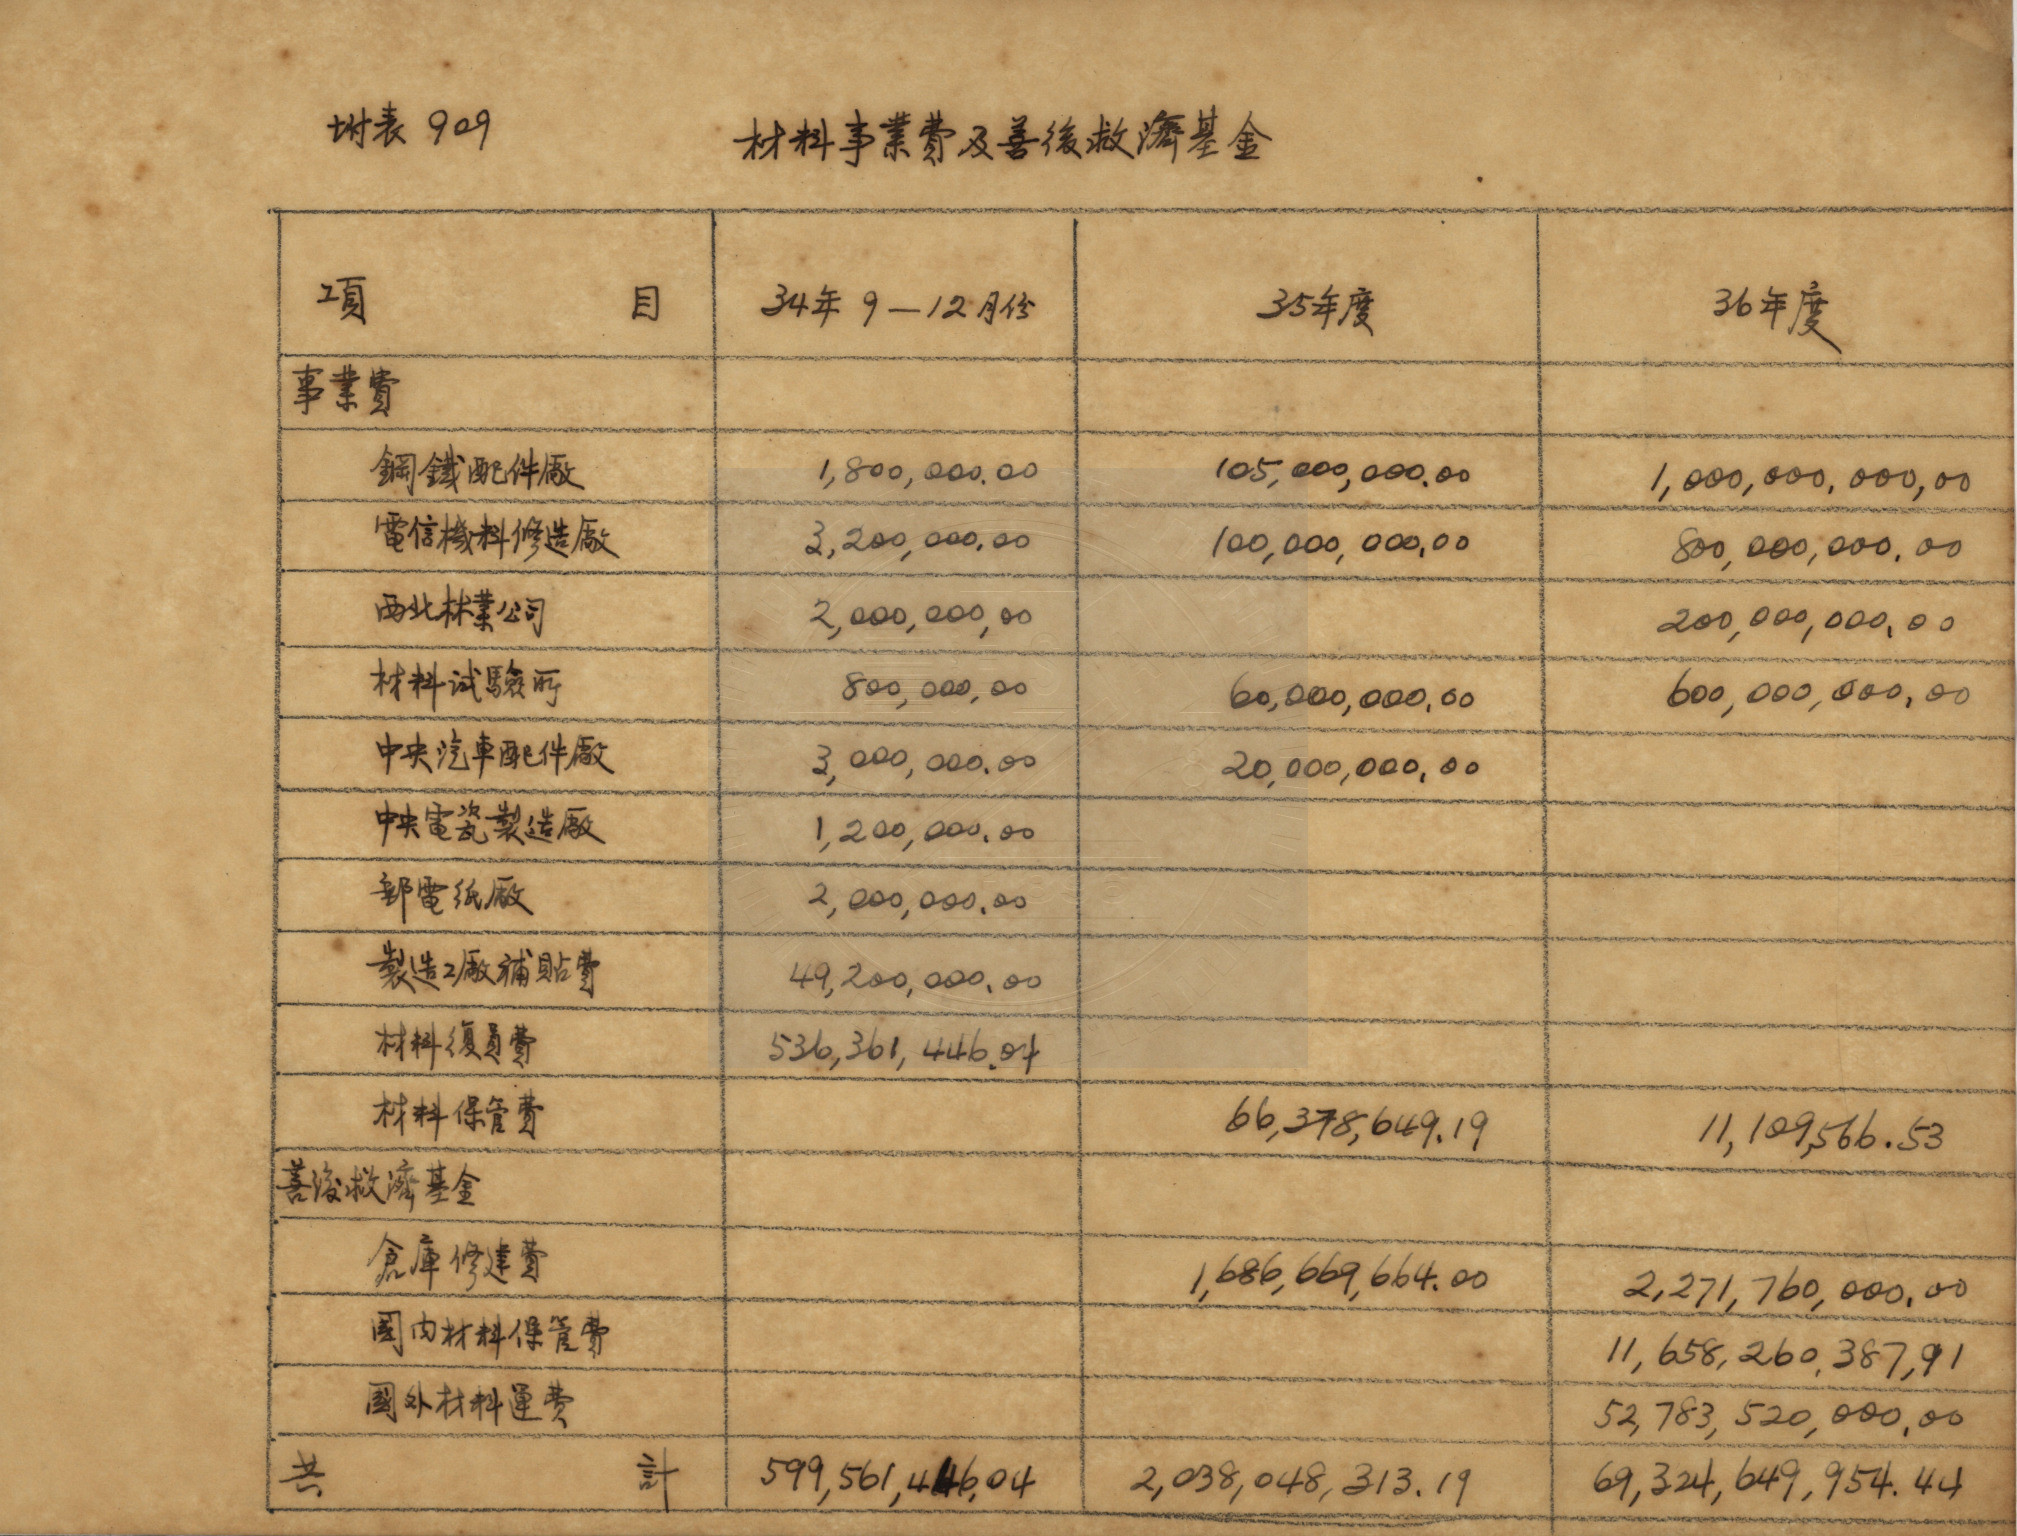 附表 909
材料事業費及善後救濟基金
項 目 34年 9—12月份 35年度 36年度
事業費
鋼鐵配件廠 1,800,000.00 105,000,000.00 1,000,000,000,00
電信機料修造廠 3,200,000.00 100,000,000.00 800,000,000.00
西北林業公司 2,000,000,00 200,000,000.00
材料試驗所 800,000,00 60,000,000.00 600,000,000.00
中央汽車配件廠 3,000,000.00 20,000,000.00
中央電瓷製造廠 1,200,000.00
部電紙廠 2,000,000.00
製造工廠補貼費 49,200,000.00
材料復員費 536,361,446.04
材料保管費 66,378,649.19 11,109,566.53
善後救濟基金
倉庫修建費 1,686,669,664.00 2,271,760,000.00
國内材料保管費 11,658,260,387,91
國外材料運費 52,783,520,000.00
共 計 599,561,446,04 2,038,048,313.19 69,324,649,954.44